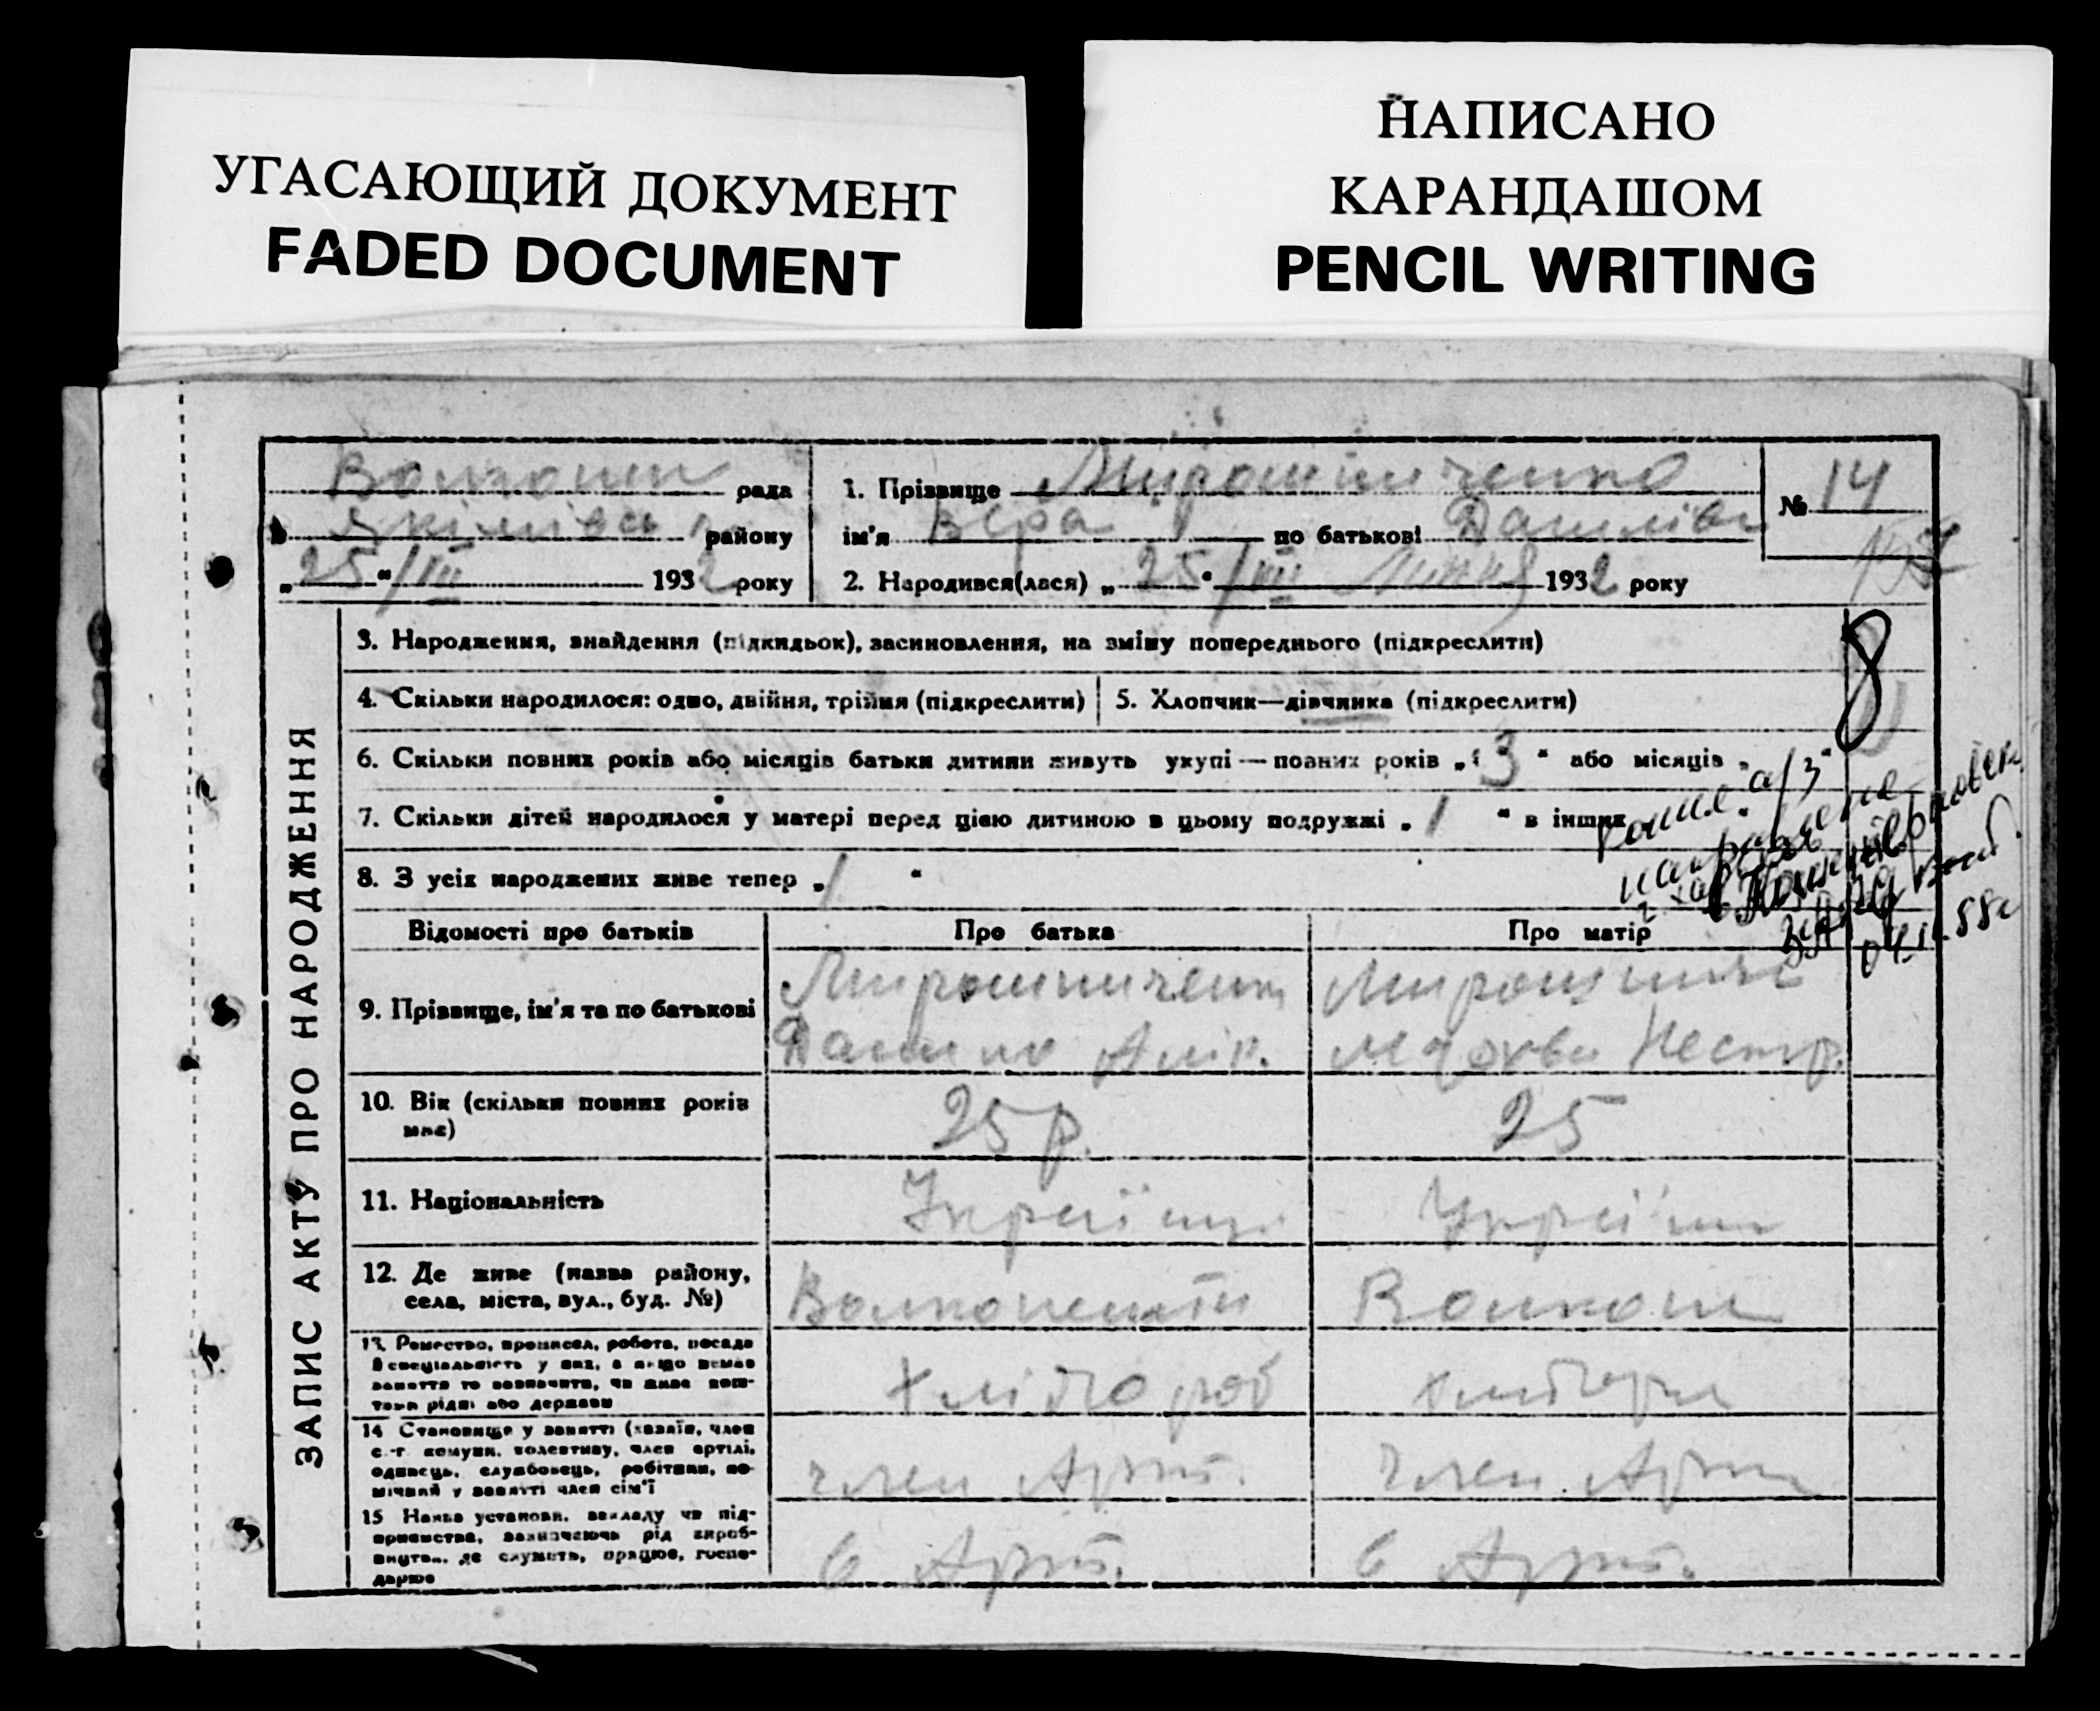 УГАСАЮЩИЙ ДОКУМЕНТ
FADED DOCUMENT
НАПИСАНО
КАРАНДАШОМ
PENCIL WRITING
рада
району
„25“/III 1932 року
1. Прізвище Мирошниченко
ім'я Вера по батькові Данилівн
2. Народився(лася) „25“/III 1932 року
№ 14
ЗАПИС АКТУ ПРО НАРОДЖЕННЯ
3. Народження, знайдення (підкидьок), засиновлення, на зміну попереднього (підкреслити)
4. Скільки народилося: одно, двійня, трійня (підкреслити)
5. Хлопчик—дівчинка (підкреслити)
6. Скільки повних років або місяців батьки дитини живуть укупі — повних років „3“ або місяців „ “
7. Скільки дітей народилося у матері перед цією дитиною в цьому подружжі „1“ в інших
8. З усіх народжених живе тепер „1“
04. 88г
Відомості про батьків
Про батька
Про матір
9. Прізвище, ім'я та по батькові
Мирошниченко
Данило
Нестер.
10. Вік (скільки повних років
має)
25 р.
25
11. Національність
Україн
Україн
12. Де живе (назва району,
села, міста, вул., буд. №)
13. Ремество, промисел, робота, посада
й спеціальність у них, а якщо немає
заняття то зазначити, чи живе кош-
тами рідні або держави
Хлібороб
хлібороб
14 Становище у занятті (хазяїн, член
с.-г. комуни, колективу, член артілі,
одинець, службовець, робітник, по-
мічний у занятті член сім'ї
член Арт.
член Арт
15 Назва установи, закладу чи під-
приємства, зазначаючи рід вироб-
ництва, де служить, працює, госпо-
дарює
в Арт.
в Арт.